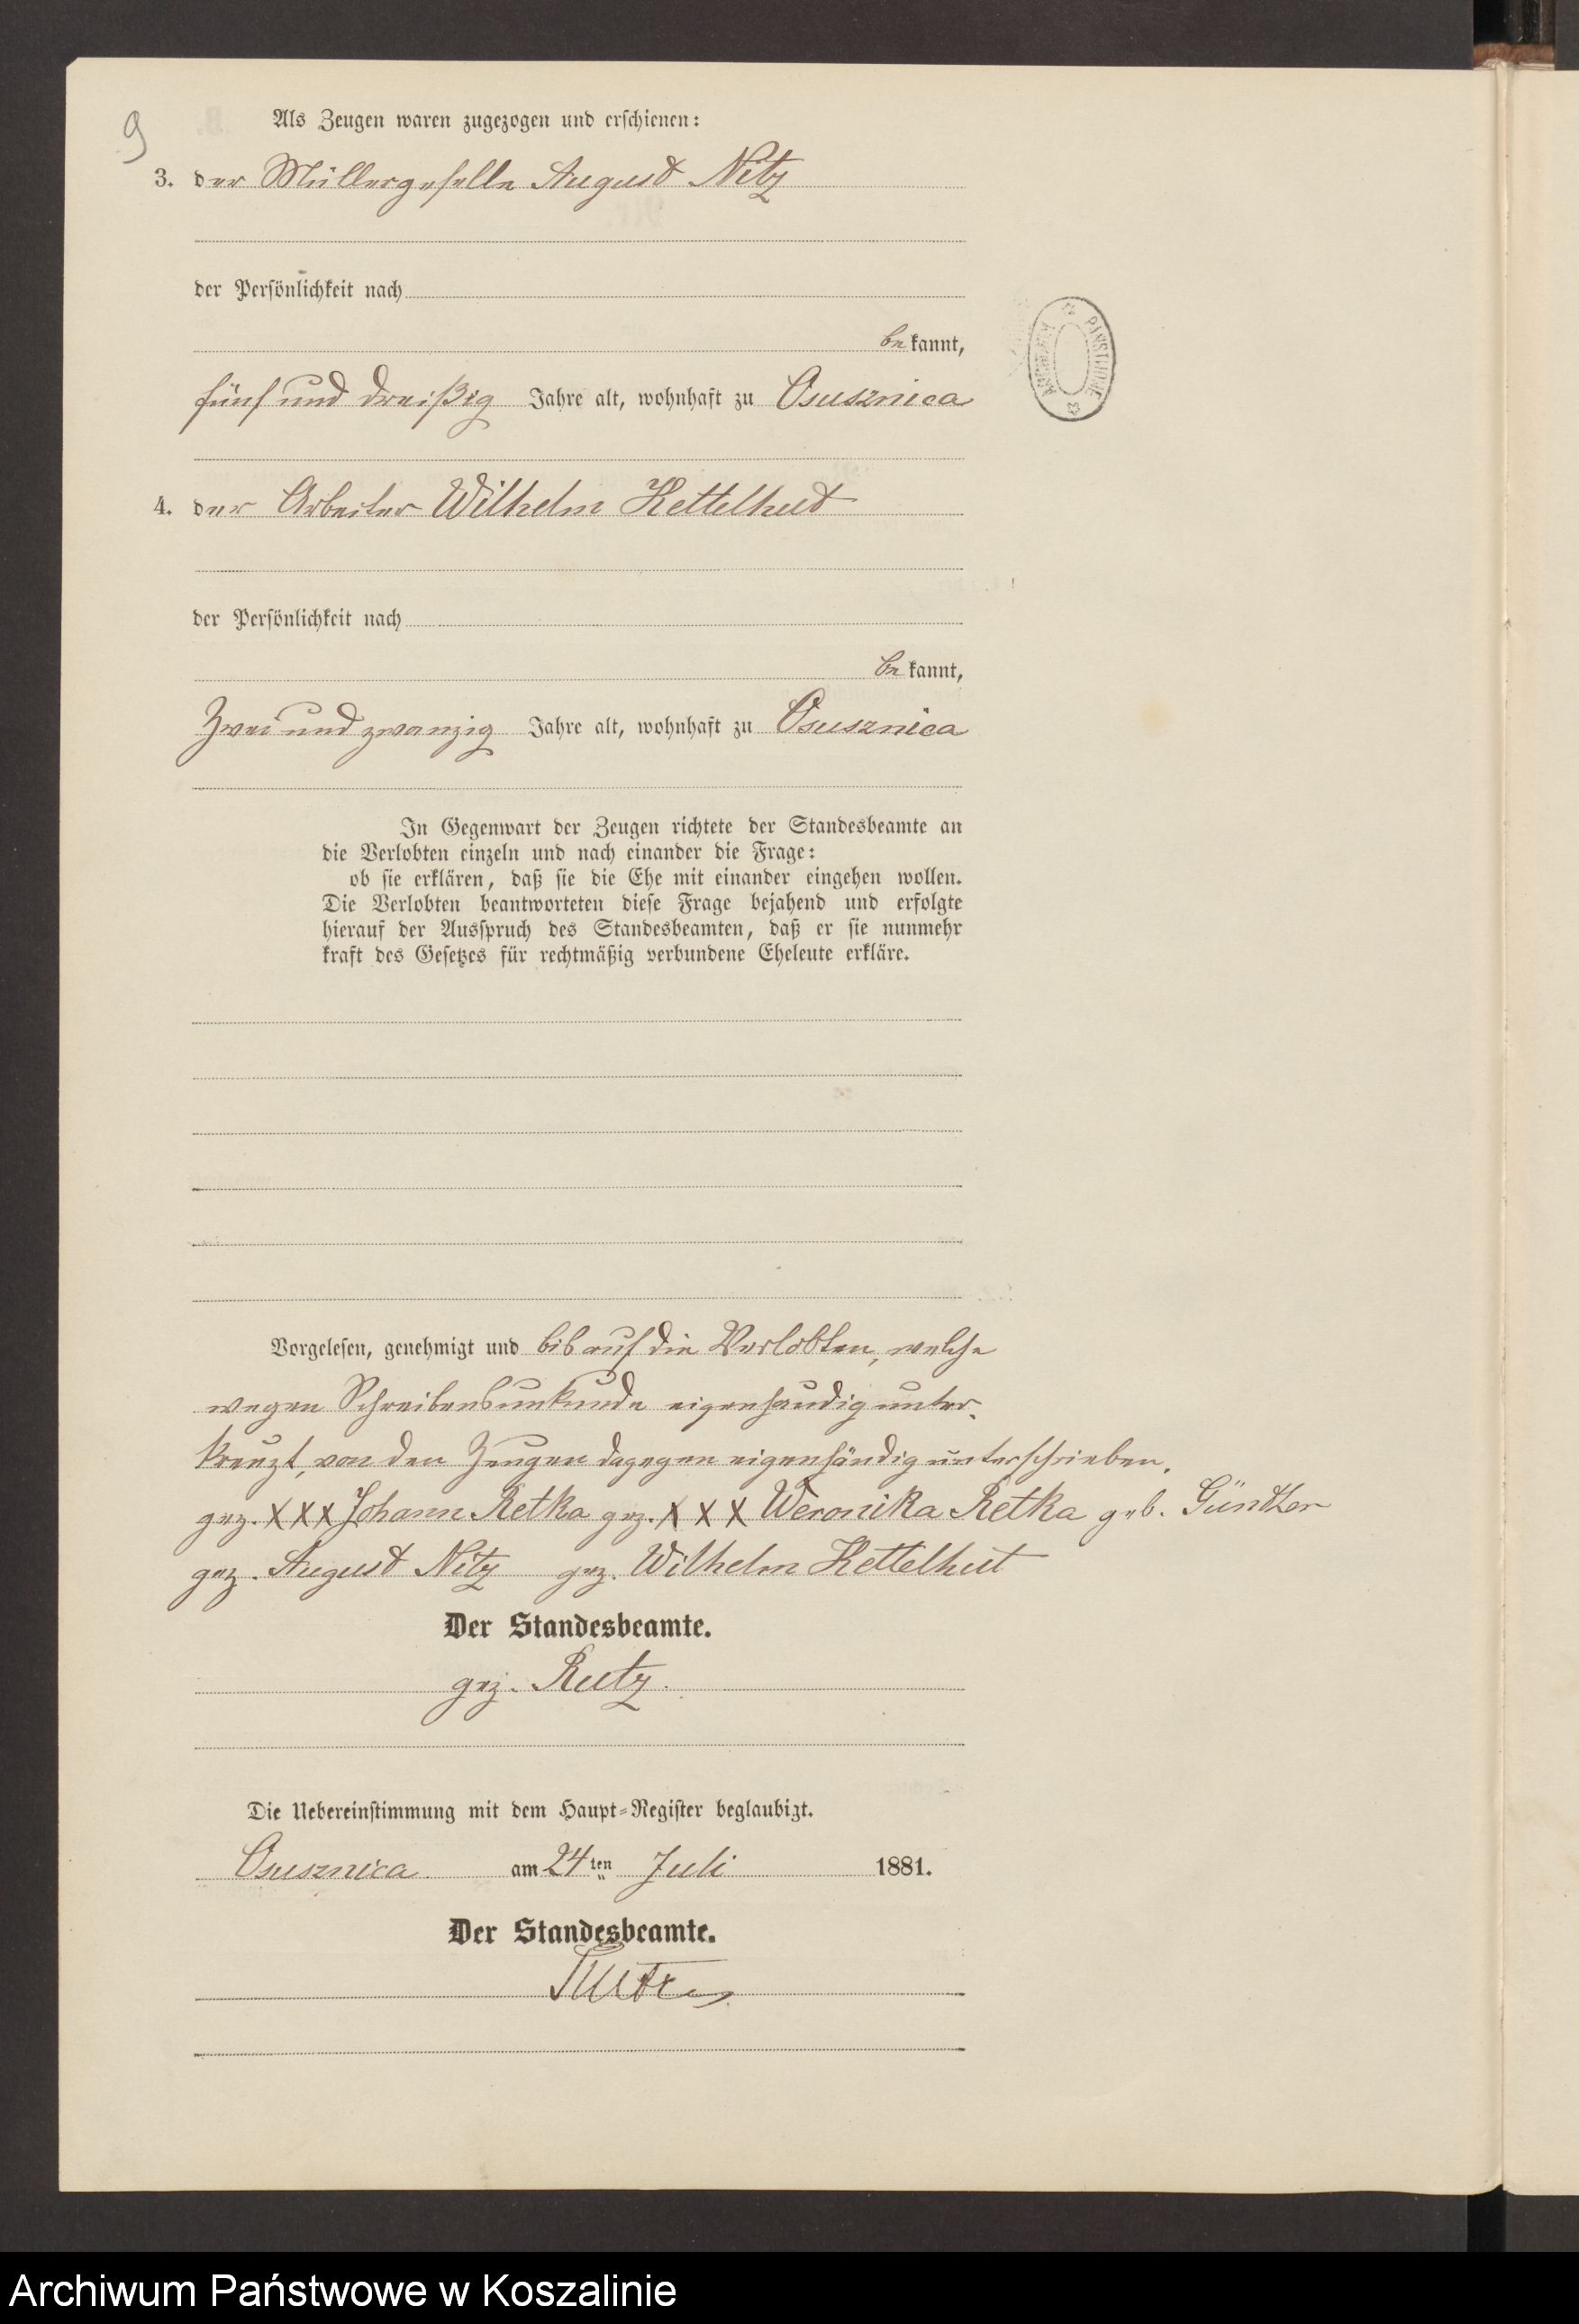 9
Als Zeugen waren zugezogen und erschienen:
3. der Müllergeselle August Nitz
der Persönlichkeit nach
bekannt,
fünf und dreißig Jahre alt, wohnhaft zu Osusznica
4. der Arbeiter Wilhelm Kettelhut
der Persönlichkeit nach
bekannt,
Zwei und zwanzig Jahre alt, wohnhaft zu Osusznica
In Gegenwart der Zeugen richtete der Standesbeamte an
die Verlobten einzeln und nach einander die Frage:
ob sie erklären, daß sie die Ehe mit einander eingehen wollen.
Die Verlobten beantworteten diese Frage bejahend und erfolgte
hierauf der Ausspruch des Standesbeamten, daß er sie nunmehr
kraft des Gesetzes für rechtmäßig verbundene Eheleute erkläre.
Vorgelesen, genehmigt und bis auf die Verlobten, welche
wegen Schreibensunkunde eigenhändig unter-
kreuzt, von den Zeugen dagegen eigenhändig unterschrieben.
gez. XXX Johann Retka gez. X X X Weronika Retka geb. Günther
gez. August Nitz gez. Wilhelm Kettelhut
Der Standesbeamte.
gez. Rutz.
Die Uebereinstimmung mit dem Haupt-Register beglaubigt.
Osusznica am 24ten Juli 1881.
Der Standesbeamte.
Rutz
ARCHIWUM PAŃSTWOWE
Archiwum Państwowe w Koszalinie